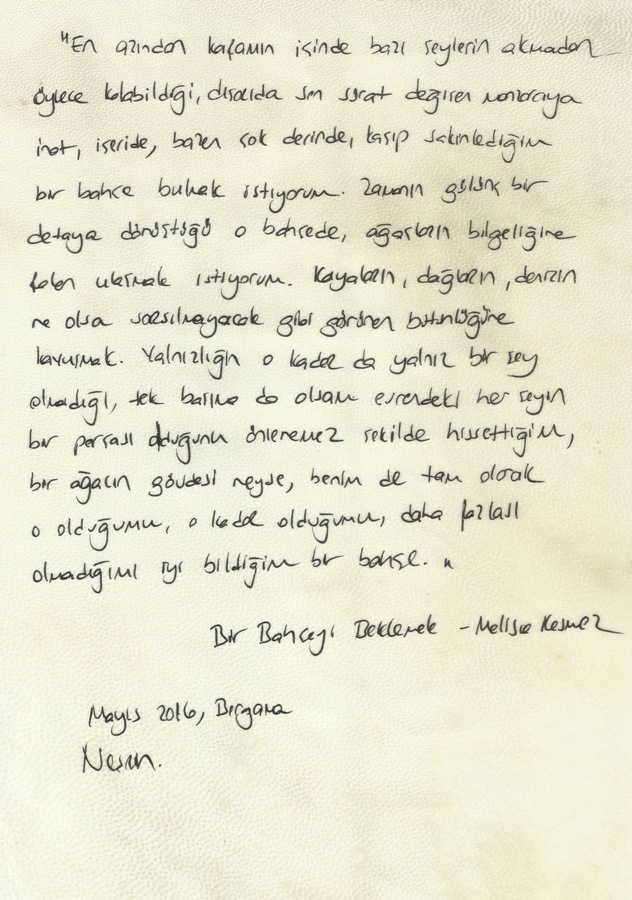 "En azından kafamın içinde bazı şeylerin akmadan
öylece kalabildiği, dışarıda son sürat değişen manzaraya
inat, içeride, bazen çok derinde, kaçıp sakinlediğim
bir bahçe bulmak istiyorum. Zamanın gülünç bir
detaya dönüştüğü o bahçede, ağaçların bilgeliğine
falan ulaşmak istiyorum. Kayaların, dağların, denizin
ne olsa sarsılmayacak gibi görünen bütünlüğüne
kavuşmak. Yalnızlığın o kadar da yalnız bir şey
olmadığı, tek başıma da olsam evrendeki her şeyin
bir parçası olduğunu önlenemez şekilde hissettiğim,
bir ağacın gövdesi neyse, benim de tam olarak
o olduğumu, o kadar olduğumu, daha fazlası
olmadığımı iyi bildiğim bir bahçe. "
Bir Bahçeyi Beklemek - Melisa Kesmez
Mayıs 2016,